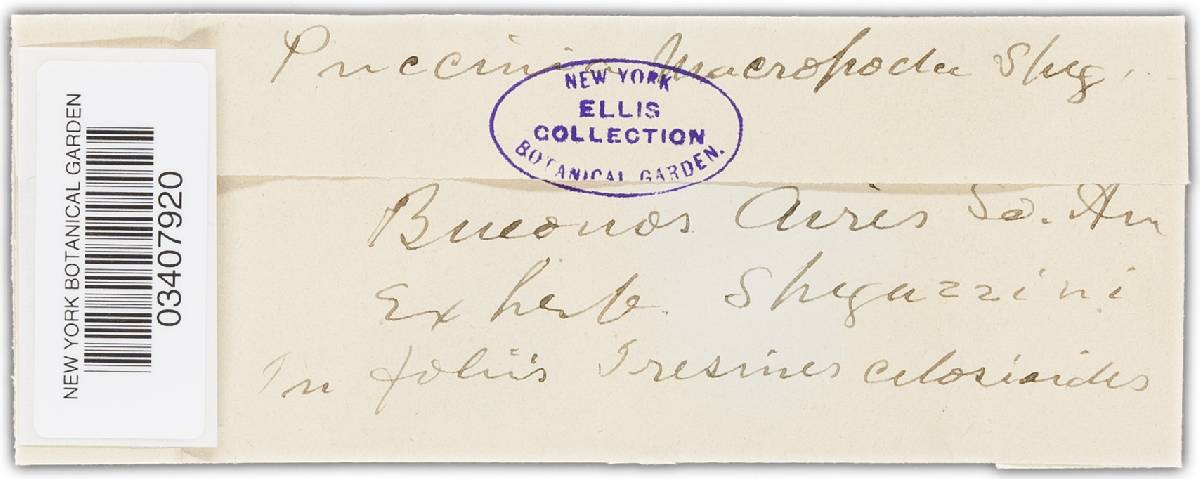 Puccinia Macropoda Speg.
NEW YORK
ELLIS
COLLECTION
BOTANICAL GARDEN.
Buenos Aires So. Am
Ex herb. Spegazzini
In foliis Iresines celosioides
NEW YORK BOTANICAL GARDEN
03407920